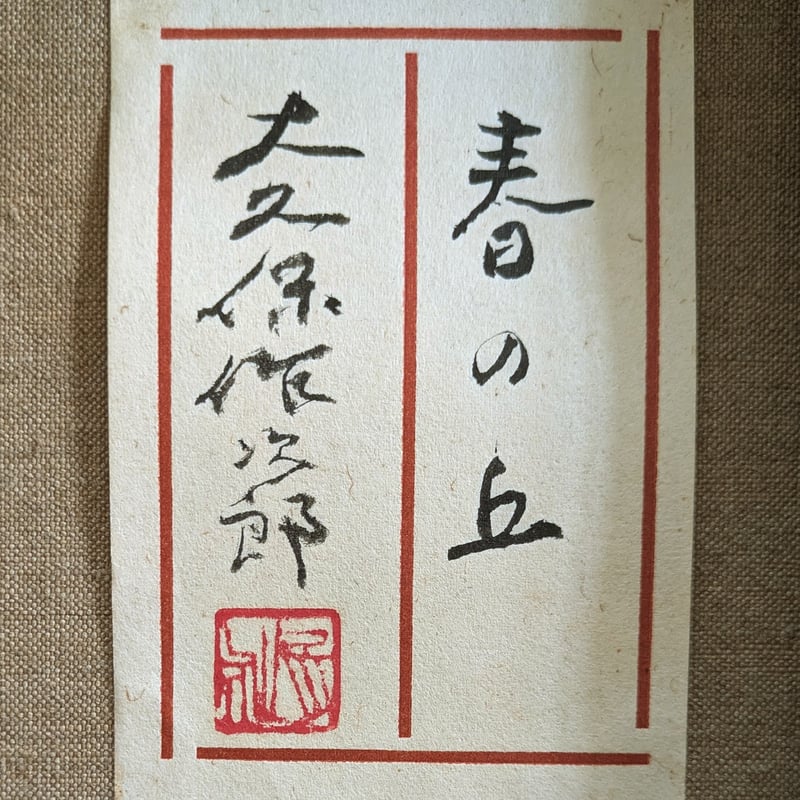 春の丘
大久保作次郎